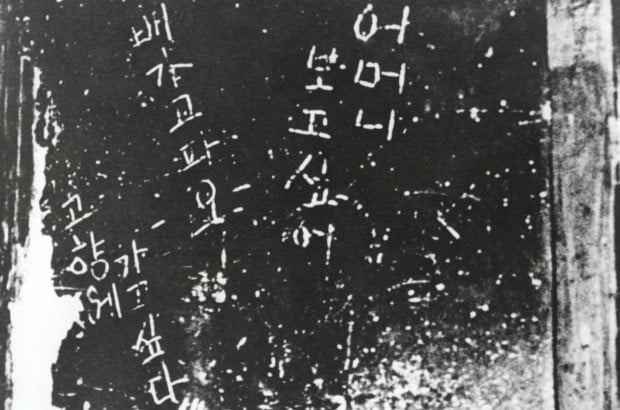 어머니
보고싶어
배가고파요
가고싶다
고향에